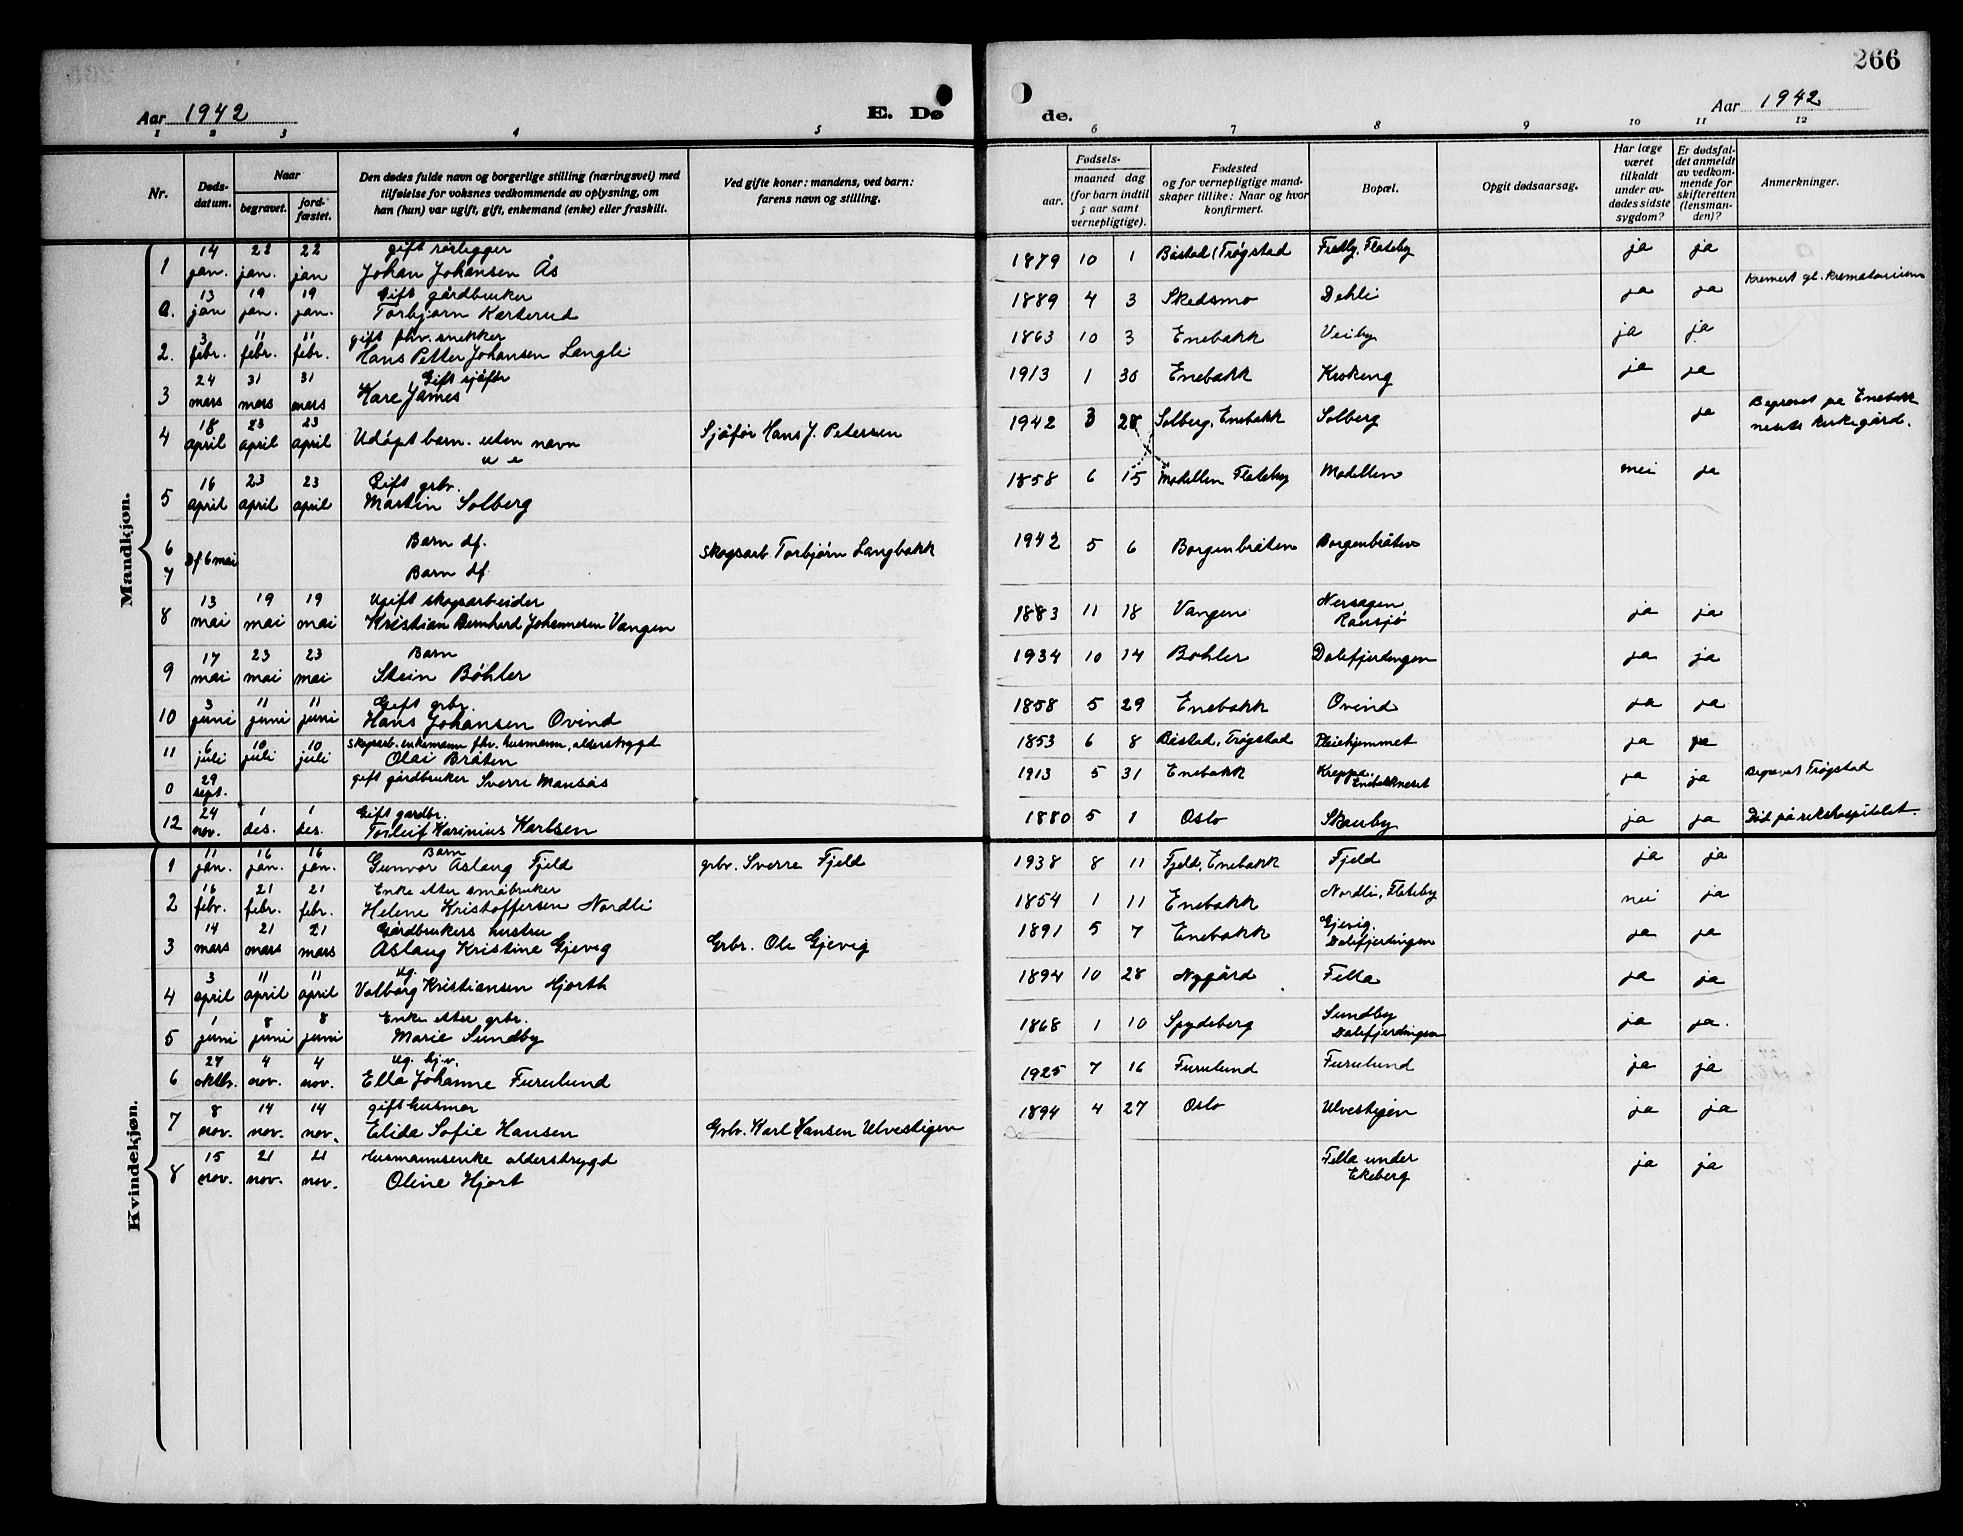 266
Aar 1942
E. Dø
de.
Aar 1942
1 2 3 4 5 6 7 8 9 10 11 12
Nr.
Døds-
datum.
Naar
begravet.
jord-
fæstet.
Den dødes fulde navn og borgerlige stilling (næringsvei) med
tilføielse for voksnes vedkommende av oplysning, om
han (hun) var ugift, gift, enkemand (enke) eller fraskilt.
Ved gifte koner: mandens, ved barn:
farens navn og stilling.
Fødsels-
aar. maaned dag
(for barn indtil
5 aar samt
vernepligtige).
Fødested
og for vernepligtige mand-
skaper tillike: Naar og hvor
konfirmert.
Bopæl.
Opgit dødsaarsag.
Har læge
været
tilkaldt
under av-
dødes sidste
sygdom?
Er dødsfal-
det anmeldt
av vedkom-
mende for
skifteretten
(lensman-
den)?
Anmerkninger.
Mandkjøn.
14 23 22 gift rørlegger
1 jan. jan. jan Johan Johansen Ås 1879 10 1 Båstad (Trøgstad Flateby ja ja
13 19 19 Gift gårdbruker Kremert gl. krematorium
0. jan jan. jan. Torbjørn Karterud 1889 4 3 Skedsmo Dehli ja ja
3 11 11 gift fhv. snekker
2. febr. febr. febr. Hans Petter Johansen Langli 1863 10 3 Enebakk Veiby ja ja
24 31 31 Gift sjåfør
3 mars mars mars Kare James 1913 1 30 Enebakk Krokeng ja ja
18 23 23 Begravet på Enebakk
4 april april april Udøpt barn. uten navn Sjåfør Hans J. Petersen 1942 3 28 Solberg, Enebakk Solberg ja nesets kirkegård.
16 23 23 Gift grbr.
5 april april april Martin Solberg 1858 6 15 Modellen Flateby Modellen nei ja
6 Barn df.
Df 6 mai Skogsarb Torbjørn Langbakk 1942 5 6 Borgenbråten Borgenbråten
7 Barn df.
13 19 19 Ugift skogsarbeider Nersagen
8 mai mai mai Kristian Bernhard Johannesen Vangen 1883 11 18 Vangen Rausjø ja ja
17 23 23 Barn
9 mai mai mai Stein Bøhler 1934 10 14 Bøhler Dalefjerdingen ja ja
3 11 11 Gift grbr.
10 juni juni juni Hans Johansen Ovind 1858 5 29 Enebakk Ovind ja ja
6 10 10 Skogsarb. enkemann fhv. husmann, alderstrygd
11 juli juli juli Olai Bråten 1853 6 8 Båstad, Trøgstad Pleiehjemmet ja ja
29 Kreppa
0 sept. gift gårdbruker Sverre Mansås 1913 5 31 Enebakk Enebakkneset ja ja Begravet Trøgstad
24 1 1 Gift gardbr.
12 nov. des. des. Torleif Karinius Karlsen 1880 5 1 Oslo Skauby ja ja Død på rikshospitalet.
Kvindekjøn.
11 16 16 Barn
1 jan. jan. jan. Gunvor Aslaug Fjeld grbr. Sverre Fjeld 1938 8 11 Fjeld, Enebakk Fjeld ja ja
16 21 21 Enke etter småbruker
2 febr. febr. febr. Helene Kristoffersen Nordli 1854 1 11 Enebakk Nordli, Flateby nei ja
14 21 21 Gårdbrukers hustru Gjevig.
3 mars mars mars Aslaug Kristine Gjevig Grbr. Ole Gjevig 1891 5 7 Enebakk Dalefjerdingen ja ja
3 11 11 Ug.
4 april april april Valborg Kristiansen Hjorth 1894 10 28 Nygård Fella ja ja
1 8 8 Enke etter grbr. Sundby
5 juni juni juni Marie Sundby 1868 1 10 Spydeberg Dalefjerdingen ja ja.
27 4 4 Ug. hj.v.
6 oktbr. nov. nov. Ella Johanne Furulund 1925 7 16 Furulund Furulund ja ja
8 14 14 gift husmor
7 nov. nov. nov. Elida Sofie Hansen Grbr. Karl Hansen Ulvestigen 1894 4 27 Oslo Ulvestigen ja ja
15 21 21 Husmannsenke alderstrygd Fella under
8 nov. nov. nov. Oline Hjort Ekeberg ja ja